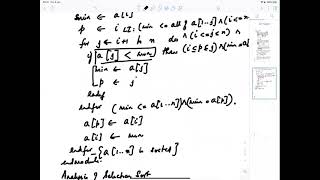 min ← a[i]
p ← i LI: (min <= all of a[i..j]) ∧ (i <=
for j ← i+1 to n do ∧ (i <= j <= n) ∧
if a[j] < min then (i ≤ p ≤ j) ∧ (min = a[
min ← a[j]
p ← j
endif
endfor (min <= a[i..n]) ∧ (min = a[p]).
a[p] ← a[i]
a[i] ← min
endfor {a[1..n] is sorted}
endmodule
Analysis of Selection Sort